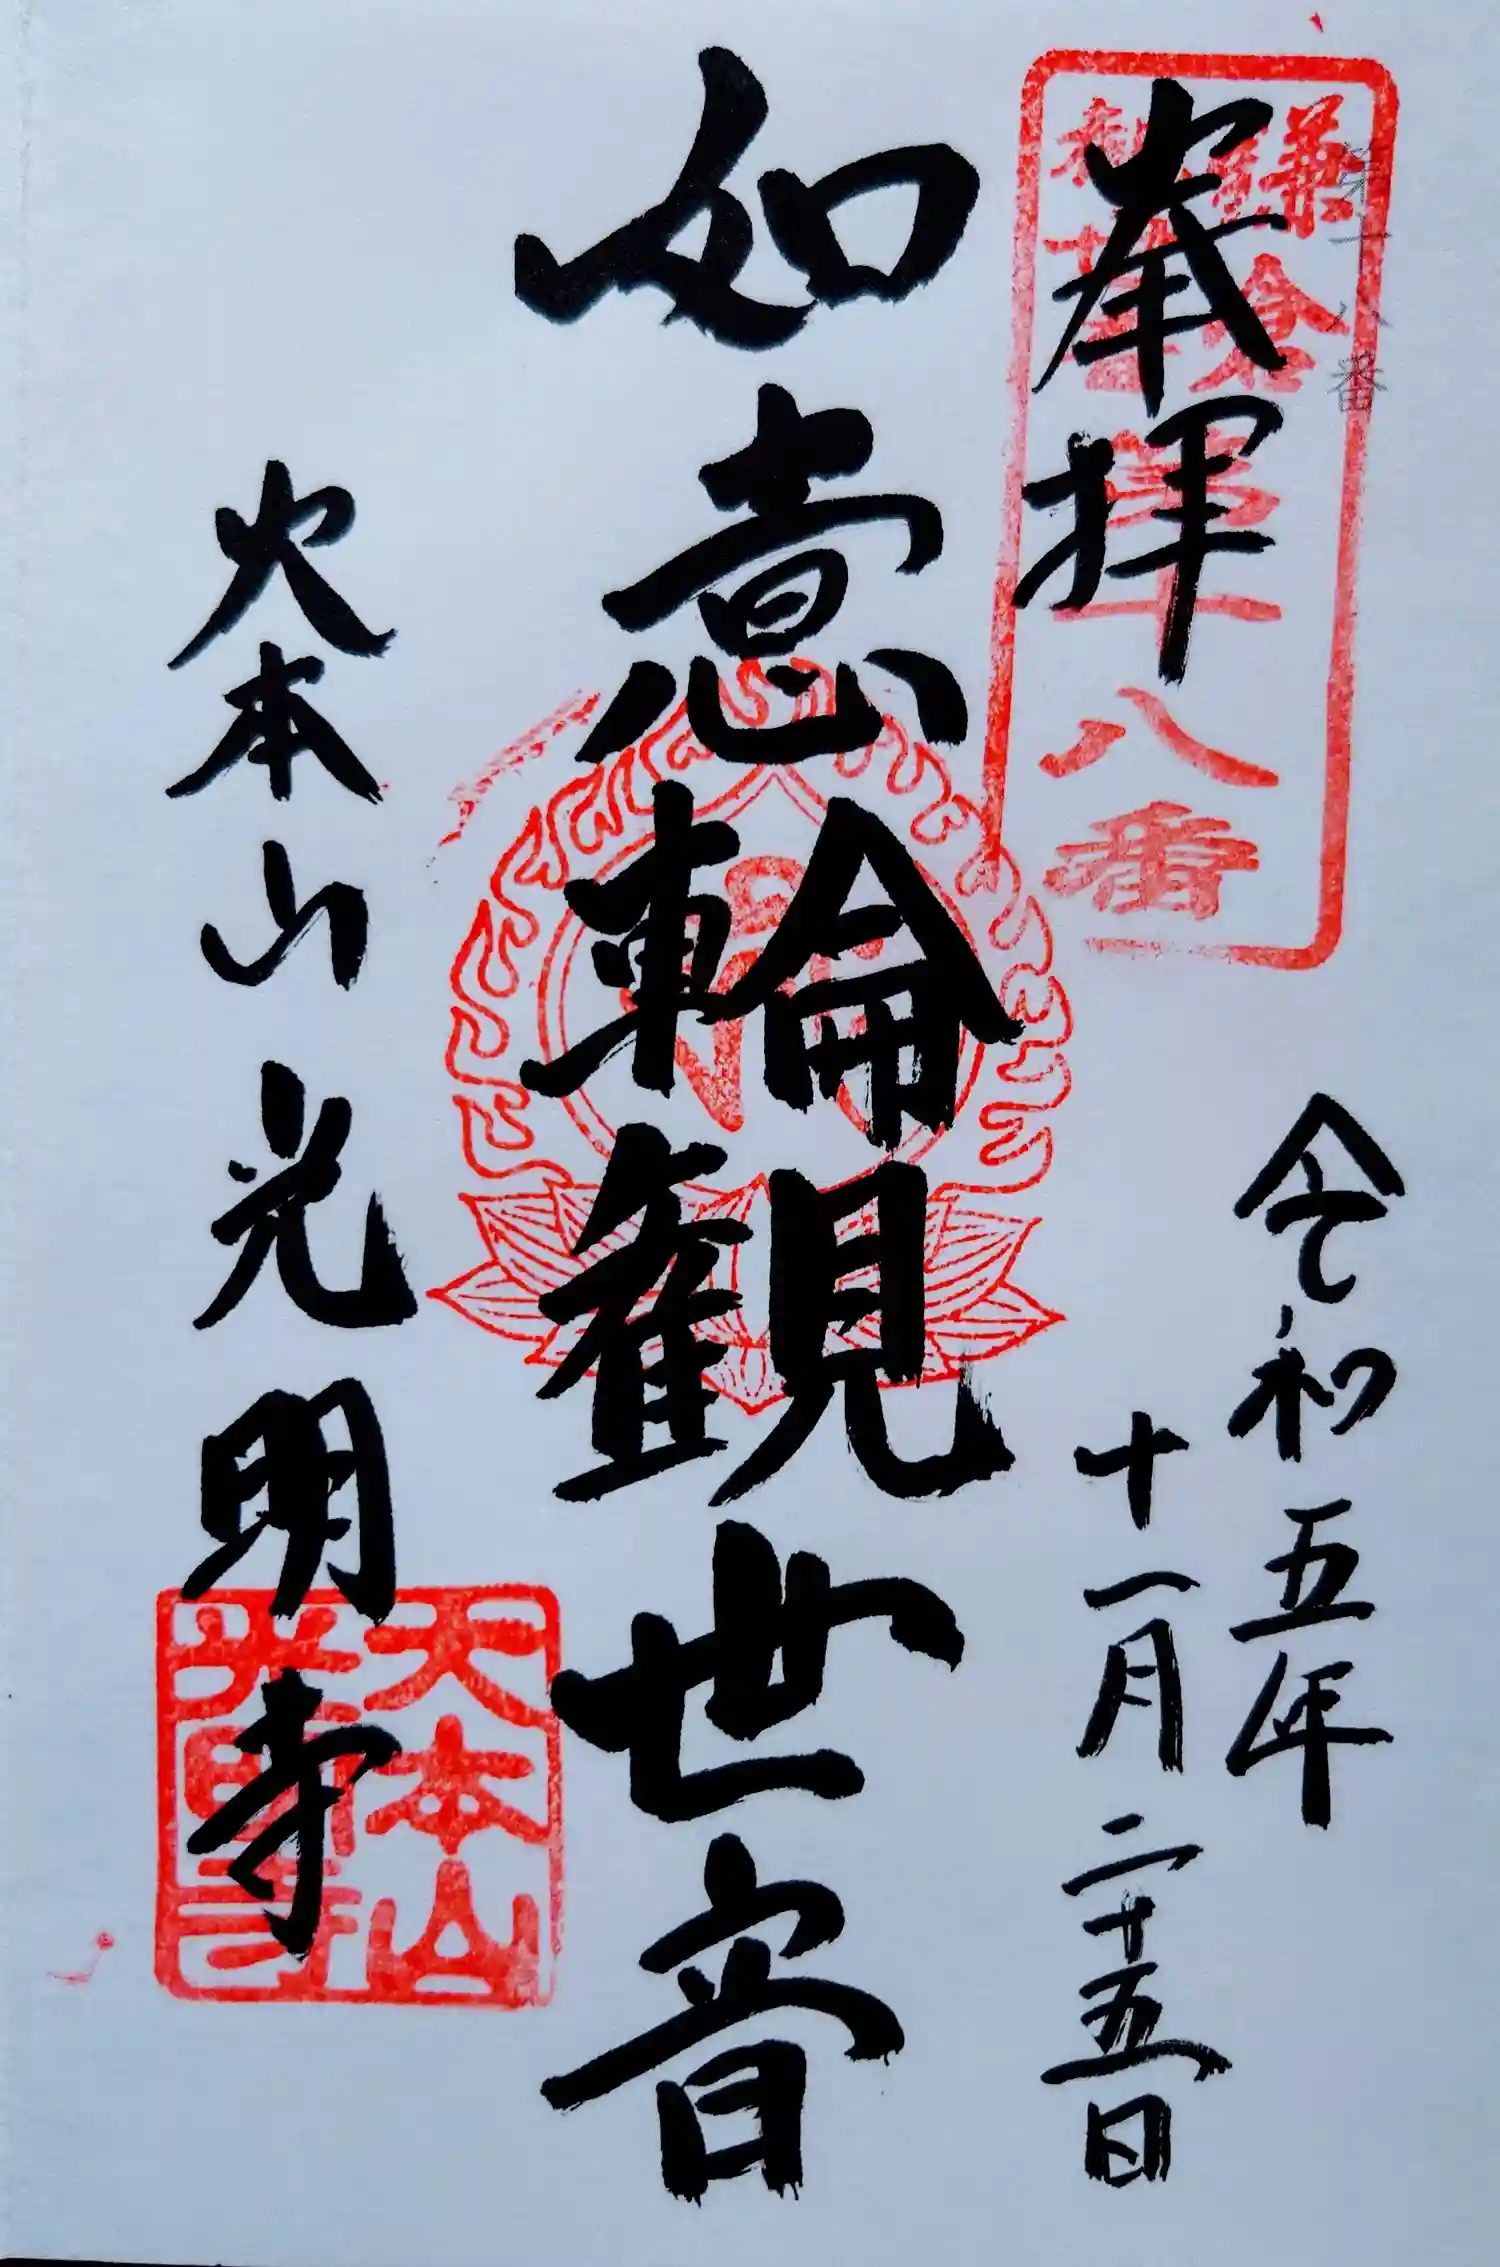 第十八番
鎌倉
第十八番
奉拝
令和五年
十一月二十五日
如意輪観世音
大本山光明寺
大本山
光明寺